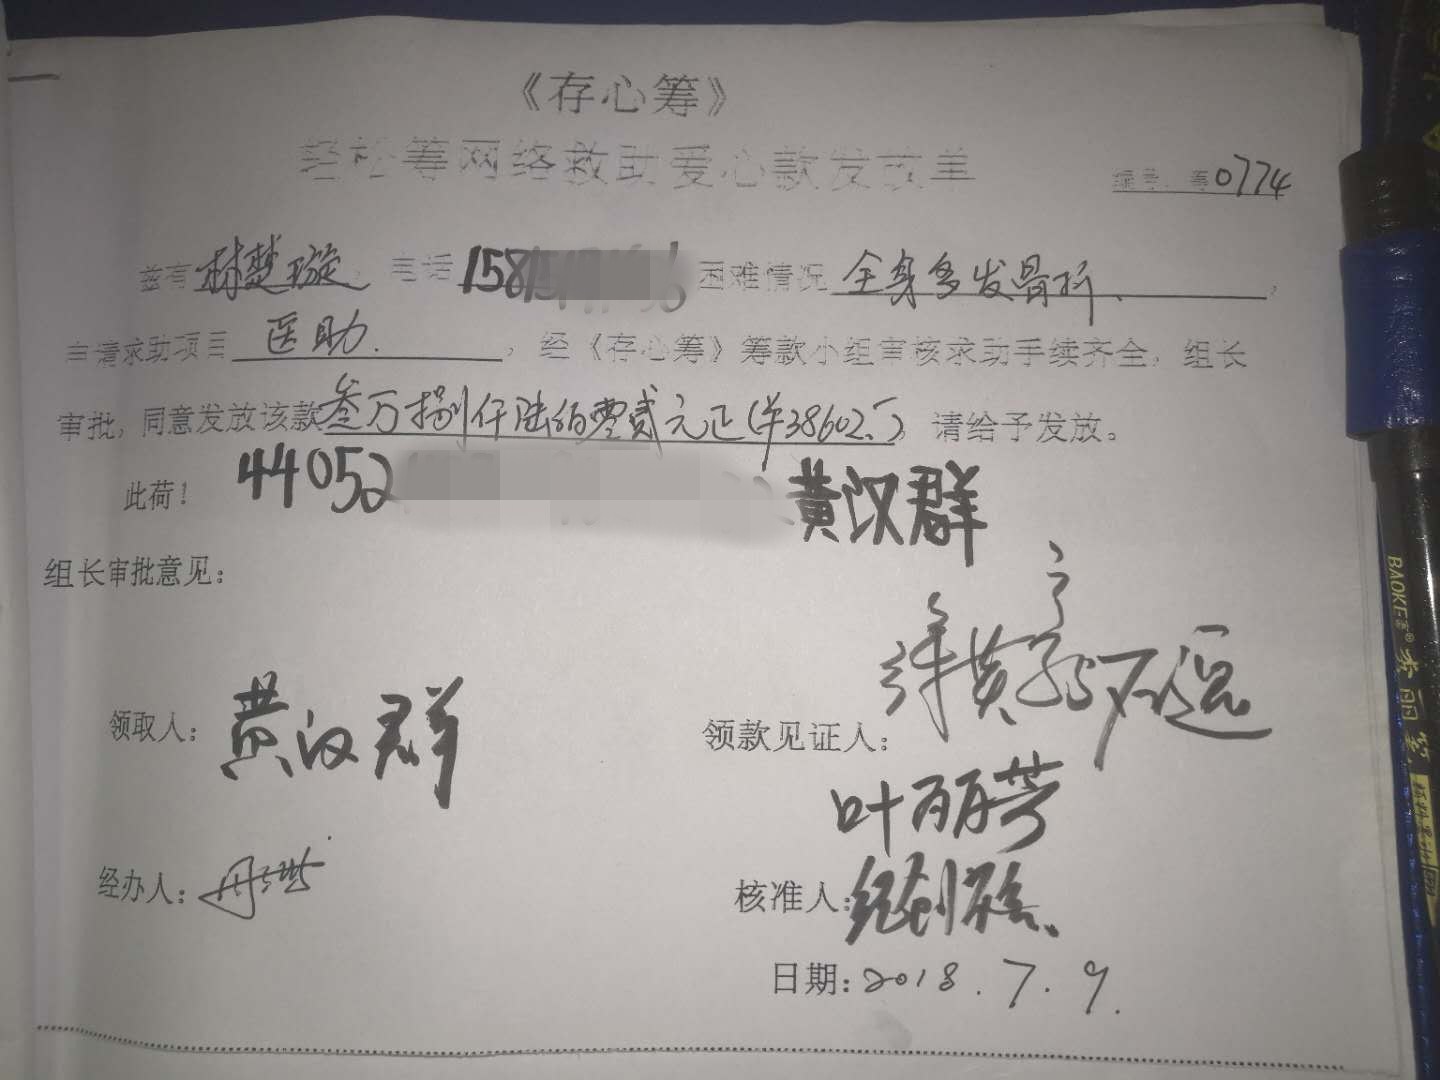 《存心筹》
轻松筹网络救助爱心款发放单
编号：筹0774
兹有 林楚璇，电话 158 困难情况 全身多发骨折，
申请求助项目 医助. ，经《存心筹》筹款小组审核求助手续齐全，组长
审批，同意发放该款叁万捌仟陆佰零贰元正(¥38602.)，请给予发放。
此荷！ 44052 黄汉群
组长审批意见：
领取人：黄汉群
领款见证人：
叶丽芳
经办人：
核准人：
日期：2018.7.9.
BAOKE®